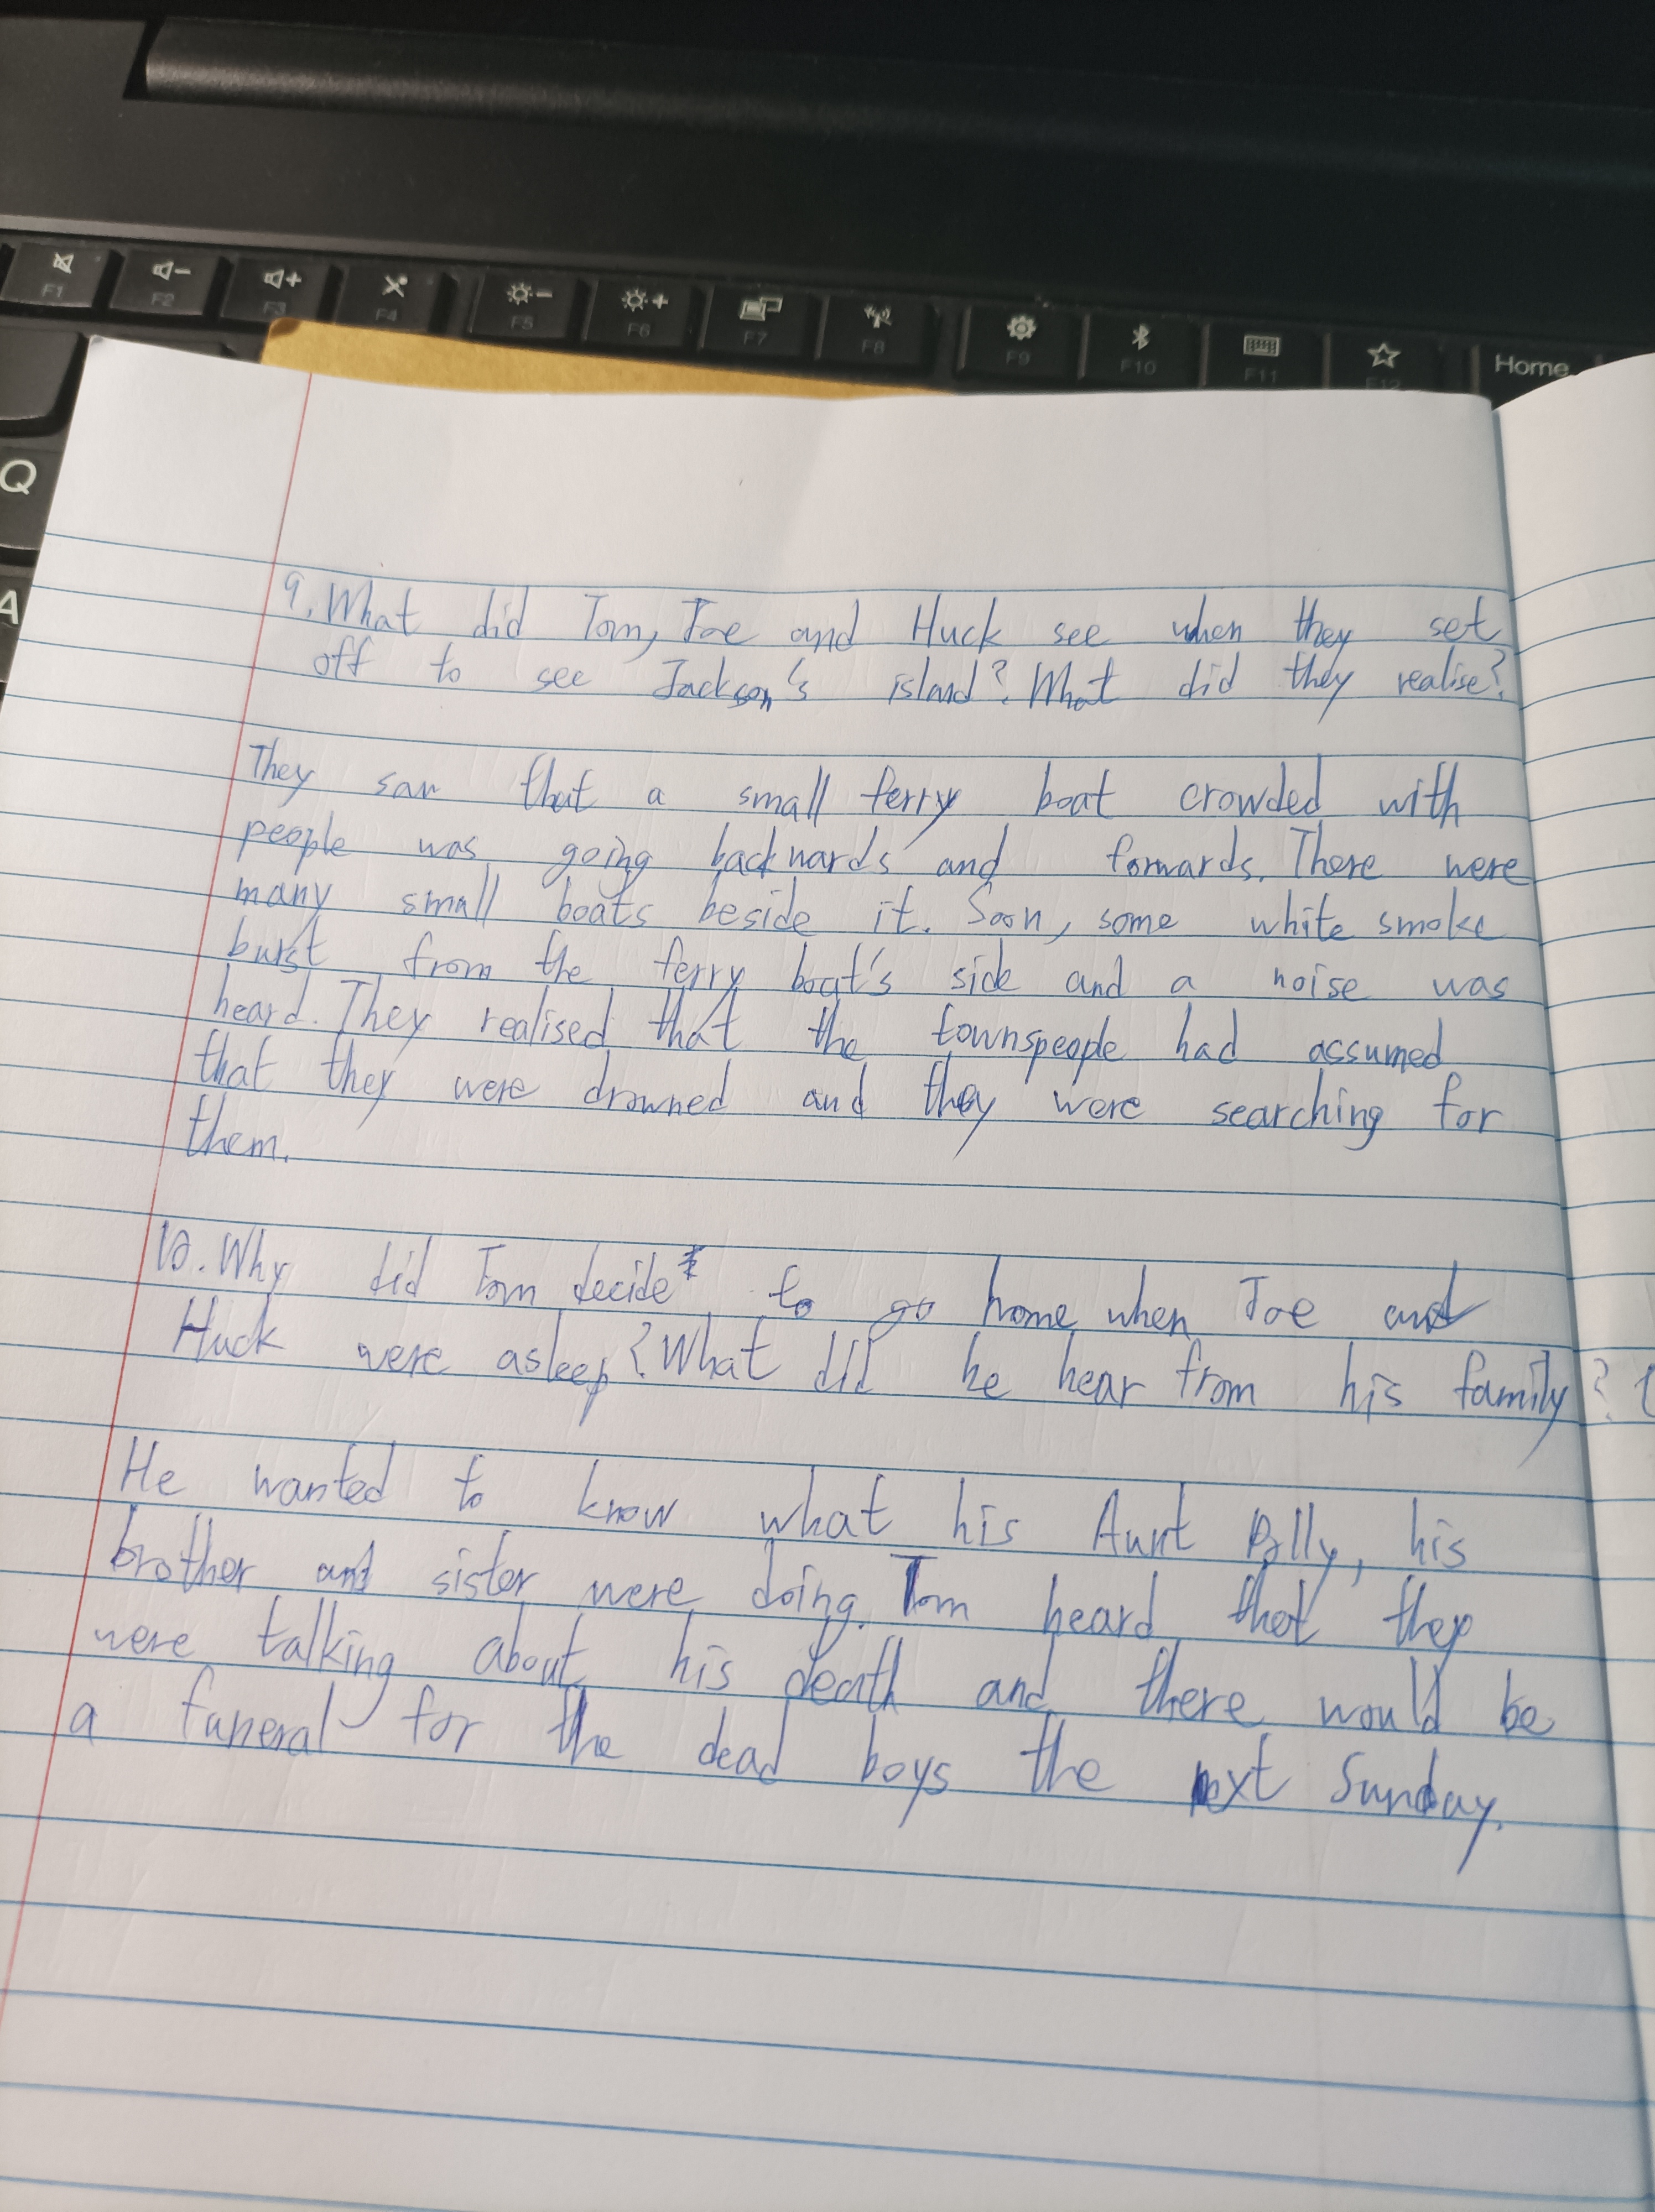 F1 F2 F3 F4 F5 F6 F7 F8 F9 F10 F11 F12 Home
Q
A
9. What did Tom, Joe and Huck see when they set
off to see Jackson's island? What did they realise?
They saw that a small ferry boat crowded with
people was going backwards and forwards. There were
many small boats beside it. Soon, some white smoke
burst from the ferry boat's side and a noise was
heard. They realised that the townspeople had assumed
that they were drowned and they were searching for
them.
10. Why did Tom decide to go home when Joe and
Huck were asleep? What did he hear from his family?
He wanted to know what his Aunt Polly, his
brother and sister were doing. Tom heard that they
were talking about his death and there would be
a funeral for the dead boys the next Sunday.